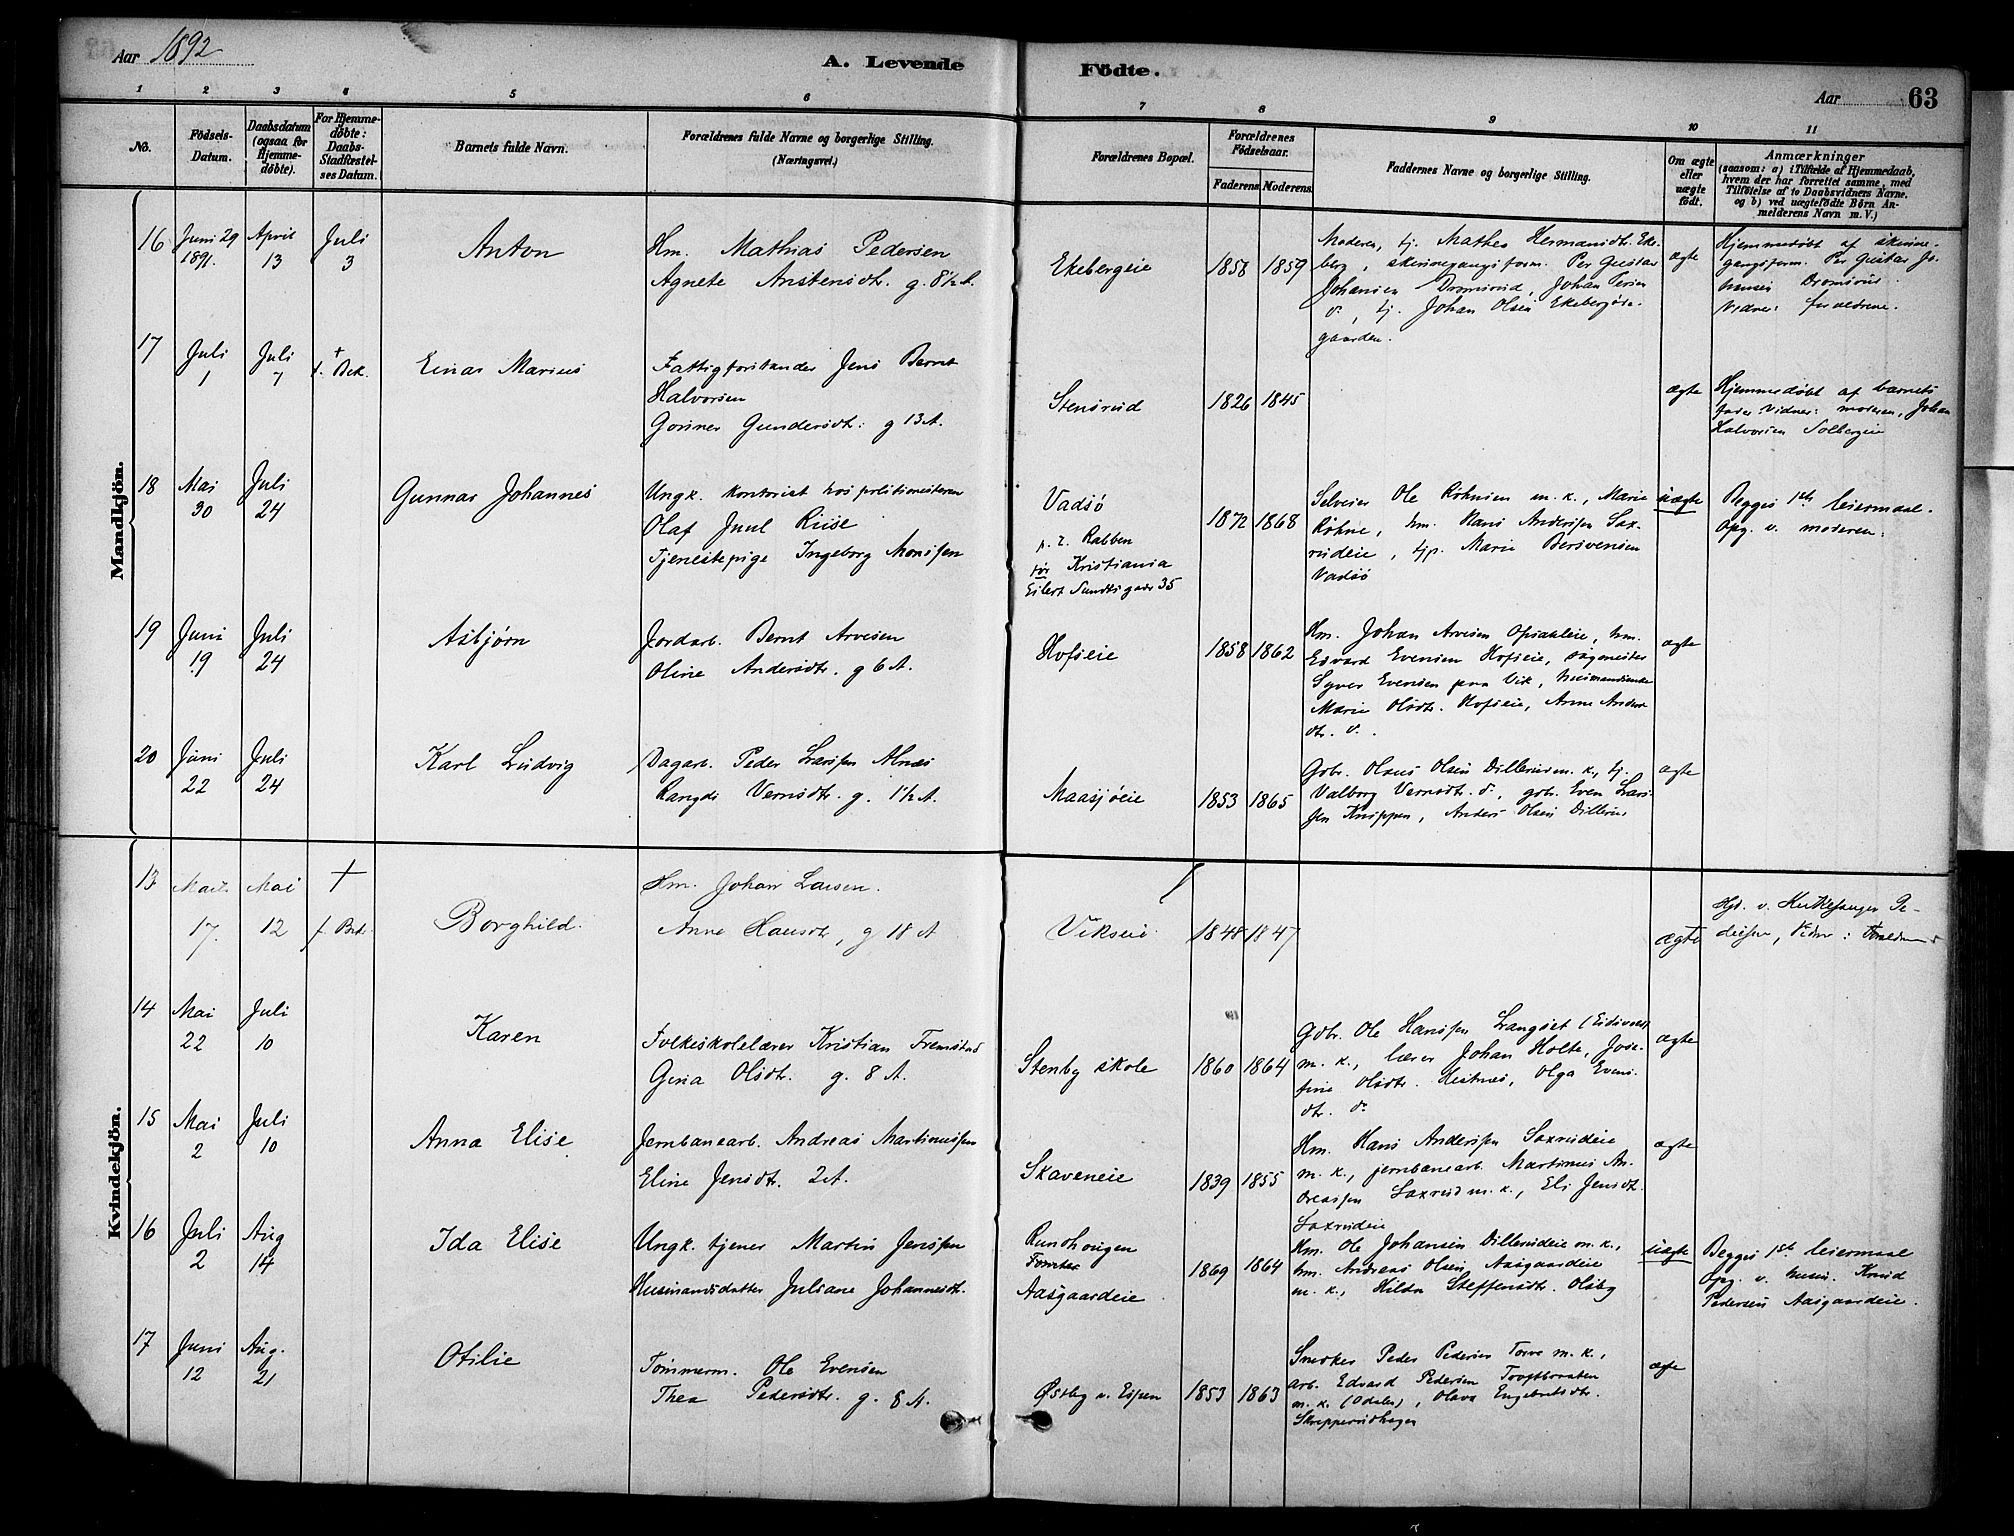 Aar 1892
A. Levende Födte.
Aar 63
1 2 3 4 5 6 7 8 9 10 11
No.
Födsels-Datum.
Daabsdatum (ogsaa for Hjemmedöbte).
For Hjemmedøbte: Daabs-Stadfæstelses Datum.
Barnets fulde Navn.
Forældrenes fulde Navne og borgerlige Stilling. (Næringsvei.)
Forældrenes Bopæl.
Forældrenes Födselsaar.
Faderens. Moderens.
Faddernes Navne og borgerlige Stilling.
Om ægte eller uægte födt.
Anmærkninger
(saasom: a) i Tilfælde af Hjemmedaab, hvem der har forrettet samme, med Tilföielse af to Daabsvidners Navne. og b) ved uægtefödte Börn Anmelderens Navn m. V.)
Mandkjön.
16 Juni 29 1891. April 13 Juli 3 Anton
Hm. Mathias Pedersen
Agnete Anstensdtr. g. 8½ A.
Ekebergeie 1858 1859
Moderen, tj. Mathea Hermansdtr. Eke-
berg, skinnegangsform. Per Gustav
Johansen Dromsrud, Johan Iversen
do, tj. Johan Olsen Ekebergøde-
gaarden.
ægte
Hjemmedøbt af skinne-
gangsform. Per Gustav Jo-
hansen Dromsrud.
Vidner: forældrene.
17 Juli 1 Juli 7 + f. Bek. Einar Marius
Fattigforstander Jens Bernt
Halvorsen
Gorine Gundersdtr. g 13 A.
Stensrud 1826 1845
ægte
Hjemmedøbt af barnets
fader Vidner: moderen, Johan
Halvorsen Solbergeie
18 Mai 30 Juli 24 Gunnar Johannes
Ungk. kontorist hos politimesteren
Olaf Juul Riise
Tjenestepige Ingeborg Monssen
Vadsø
p. t. Rabben
før Kristiania
Eilert Sundts gade 35
1872 1868
Selveier Ole Røhnsen m. k., Marie
Røhne, hm. Hans Anderssen Sax-
rudeie, tjp. Marie Bersvensen
Vadsø
uægte
Begges 1ste leiermaal.
Opg. v. moderen.
19 Juni 19 Juli 24 Asbjørn
Jordarb. Bernt Arvesen
Oline Andersdtr. g 6 A.
Hofseie 1858 1862
Hm. Johan Arvesen Opsahleie, hm.
Edvard Evensen Hofseie, sagmester
Syver Evensen paa Vik, husmandsenke
Marie Olsdtr. Hofseie, Anne Anders-
dtr. do.
ægte
20 Juni 22 Juli 24 Karl Ludvig
Dagarb. Peder Larssen Alnæs
Rangdi Vernsdtr. g. 1½ A.
Maasjøeie 1853 1865
Gdbr. Olaus Olsen Dillerud m. k., tj.
Valborg Vernsdtr. do, gdbr. Even Lars-
sen Knippen, Anders Olsen Dillerud
ægte
Kvindekjön.
13 Marts 17. Mai 12 + f. Bek. Borghild.
Hm. Johan Larsen.
Anne Hansdtr, g 18 A
Vikseie 1848 1847
ægte
Hjd. v. Kirkesanger Pe-
dersen, Vidner: Forældrene
14 Mai 22 Juli 10 Karen
Folkeskolelærer Kristian Fremstad
Gina Olsdtr. g. 8 A.
Stenby skole 1860 1864
Gdbr. Ole Hanssen Langset (Eidsvold)
m. k., lærer Johan Holte, Jose-
fine Olsdtr. Hestnes, Olga Evens-
dtr. do
ægte
15 Mai 2 Juli 10 Anna Elise
Jernbanearb. Andreas Martinussen
Eline Jensdtr. 2 A.
Skaveneie 1839 1855
Hm. Hans Anderssen Saxrudeie
m. k., jernbanearb. Martinus An-
dreassen Saxrud m. k., Eli Jensdtr.
Saxrudeie
ægte
16 Juli 2 Aug 14 Ida Elise
Ungk. tjener Martin Jenssen
Husmandsdatter Juliane Johannesdtr.
Rundhougen
Tomter
Aasgaardeie
1869 1864
Hm. Ole Johansen Dillerudeie m. k.,
hm. Andreas Olsen Aasgaardeie
m. k., Hilda Steffensdtr. Olsby
uægte
Begges 1ste leiermaal
Opg. v. husm. Knud
Pedersen Aasgaardeie.
17 Juni 12 Aug. 21 Otilie
Tømmerm. Ole Evensen
Thea Pedersdtr. g. 8 A.
Østby u. Espen 1853 1863
Snedker Peder Pedersen Torve m. k.,
arb. Edvard Pedersen
m. k. (Odalen), Olava Engebretsdtr.
Skepperudhagen
ægte